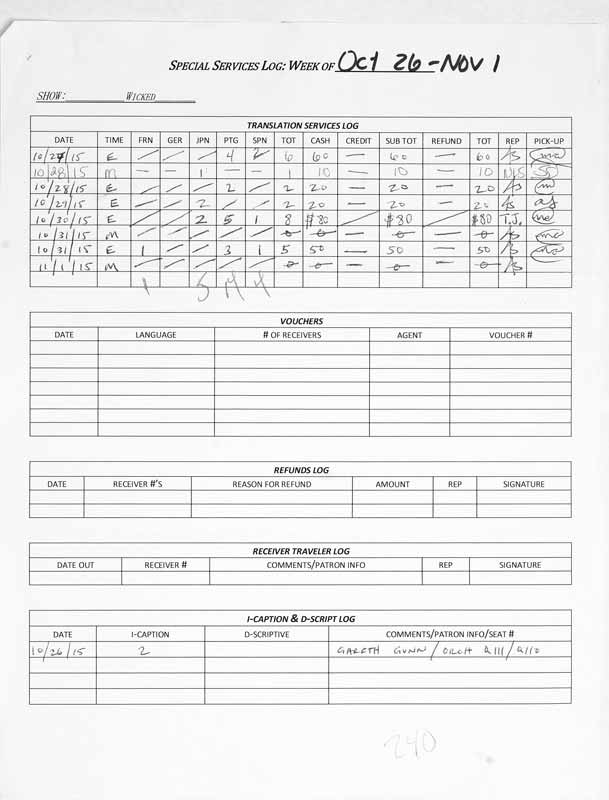 SPECIAL SERVICES LOG: WEEK OF Oct 26 - Nov 1
SHOW: WICKED
TRANSLATION SERVICES LOG
DATE TIME FRN GER JPN PTG SPN TOT CASH CREDIT SUB TOT REFUND TOT REP PICK-UP
10/27/15 E / / / 4 2 6 60 — 60 — 60
10/28/15 M — — 1 — — 1 10 — 10 — 10
10/28/15 E / / / 2 / 2 20 — 20 — 20
10/29/15 E / / 2 / / 2 20 — 20 — 20
10/30/15 E / / 2 5 1 8 $80 / $80 / $80 T.J.
10/31/15 M / / / / / 0 0 — 0 — 0
10/31/15 E 1 / / 3 1 5 50 — 50 — 50
11/1/15 M / / / / / 0 0 — 0 — 0
1 5 14 4
VOUCHERS
DATE LANGUAGE # OF RECEIVERS AGENT VOUCHER #
REFUNDS LOG
DATE RECEIVER #'S REASON FOR REFUND AMOUNT REP SIGNATURE
RECEIVER TRAVELER LOG
DATE OUT RECEIVER # COMMENTS/PATRON INFO REP SIGNATURE
I-CAPTION & D-SCRIPT LOG
DATE I-CAPTION D-SCRIPTIVE COMMENTS/PATRON INFO/SEAT #
10/26/15 2 GARETH GUNN / ORCH Q111/Q110
240